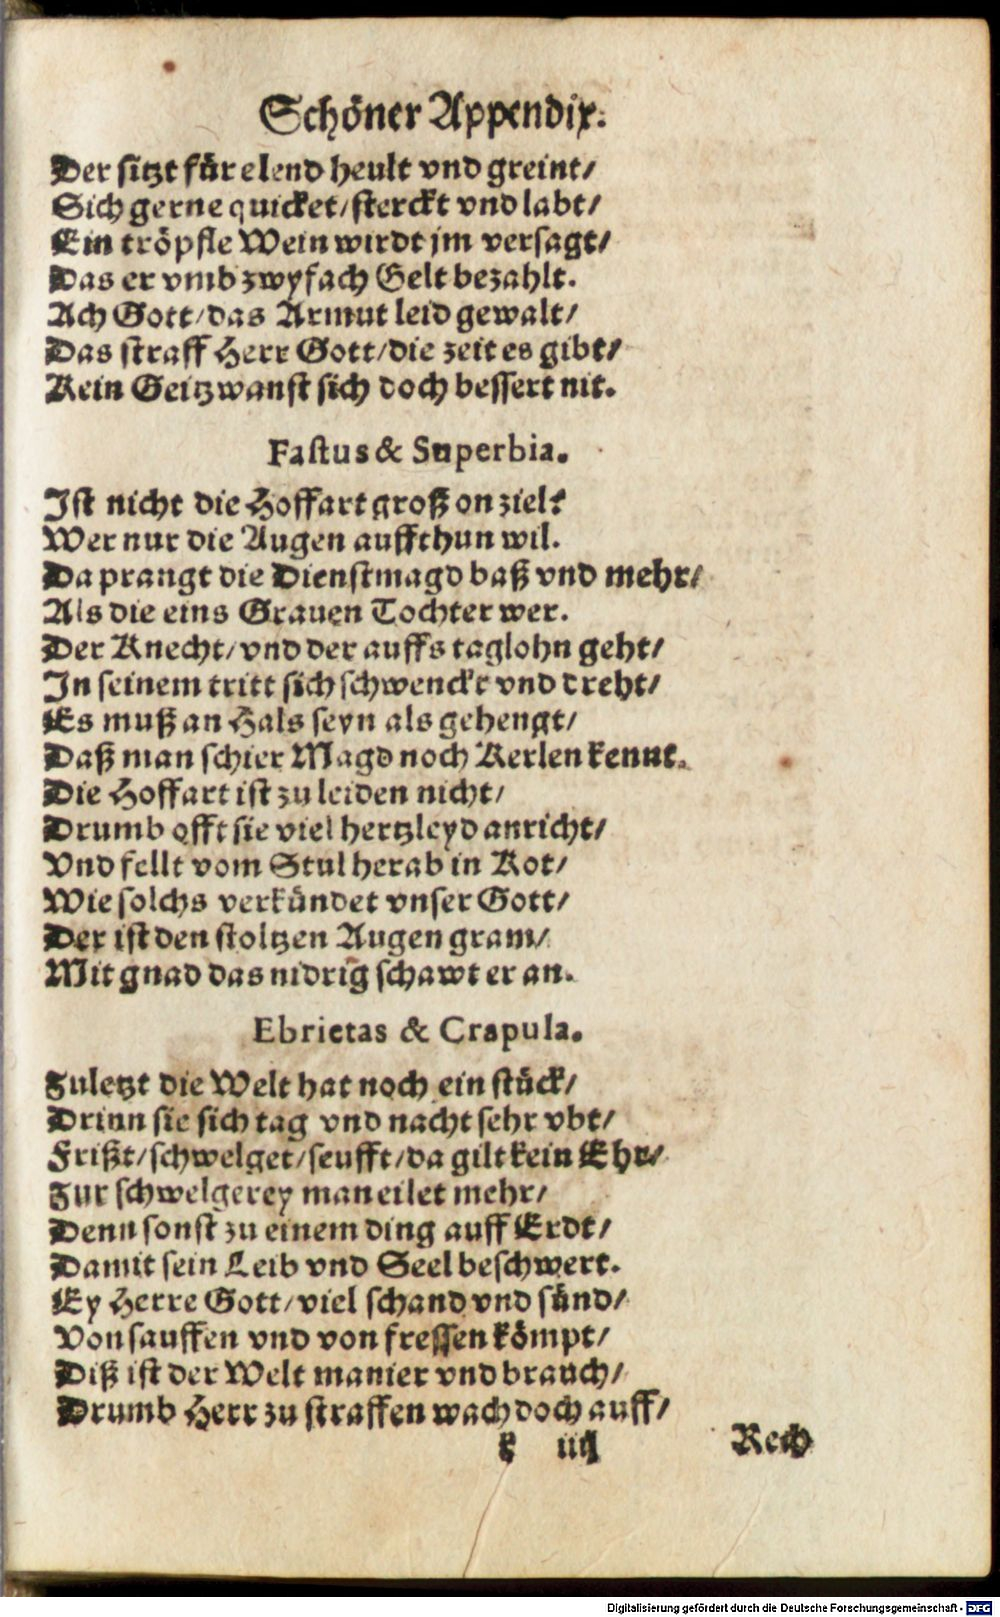 Schöner Appendix.
Der sitzt für elend heult vnd greint/
Sich gerne quicket/sterckt vnd labt/
Ein tröpfle Wein wirdt jm versagt/
Das er vmb zwyfach Gelt bezahlt.
Ach Gott/das Armut leid gewalt/
Das straff Herr Gott/die zeit es gibt/
Kein Geitzwanst sich doch bessert nit.
Fastus & Superbia.
Ist nicht die Hoffart groß on ziel?
Wer nur die Augen auffthun wil.
Da prangt die Dienstmagd baß vnd mehr/
Als die eins Grauen Tochter wer.
Der Knecht/vnd der auffs taglohn geht/
In seinem tritt sich schwenckt vnd dreht/
Es muß an Hals seyn als gehengt/
Daß man schier Magd noch Kerlen kennt.
Die Hoffart ist zu leiden nicht/
Drumb offt sie viel hertzleyd anricht/
Vnd fellt vom Stul herab in Kot/
Wie solchs verkündet vnser Gott/
Der ist den stoltzen Augen gram/
Mit gnad das nidrig schawt er an.
Ebrietas & Crapula.
Zuletzt die Welt hat noch ein stück/
Drinn sie sich tag vnd nacht sehr vbt/
Frißt/schwelget/seufft/da gilt kein Ehr/
Zur schwelgerey man eilet mehr/
Denn sonst zu einem ding auff Erdt/
Damit sein Leib vnd Seel beschwert.
Ey Herre Gott/viel schand vnd sünd/
Von sauffen vnd von fressen kömpt/
Diß ist der Welt manier vnd brauch/
Drumb Herr zu straffen wach doch auff/
r iiij Rech
Digitalisierung gefördert durch die Deutsche Forschungsgemeinschaft - DFG